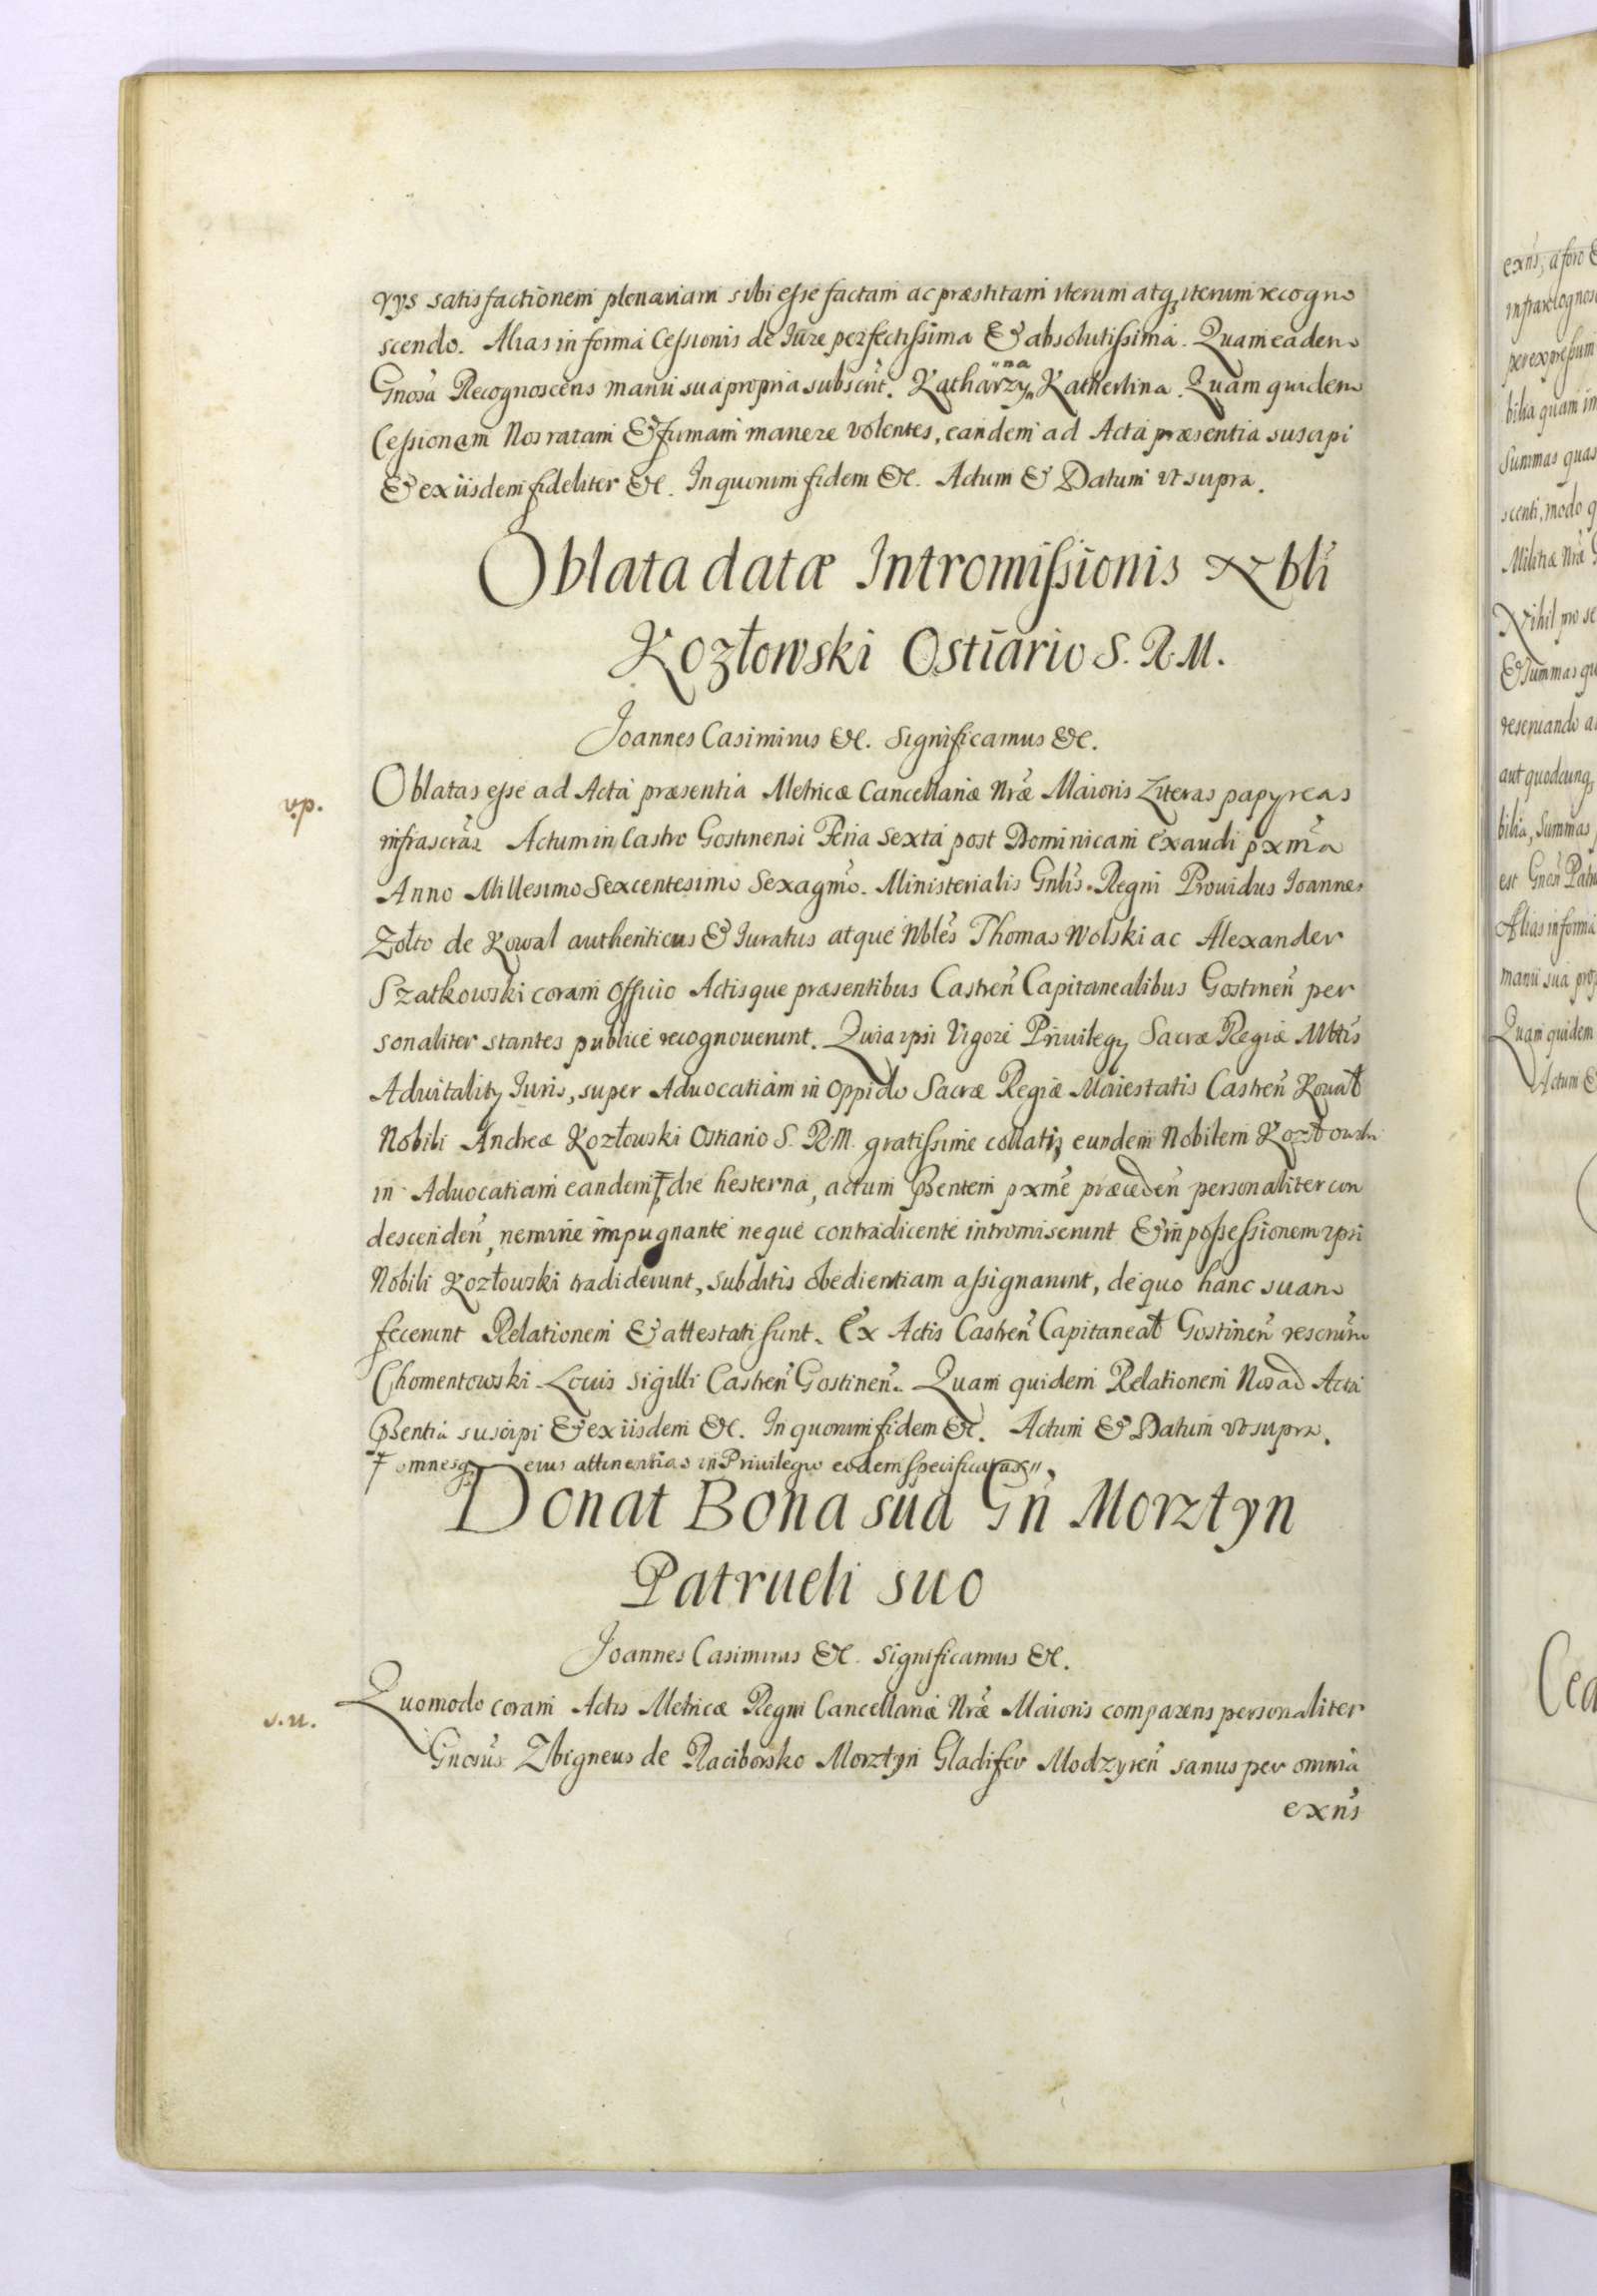 rijs satisfactionem plenariam sibi esse factam ac præstitam iterum atq3 iterum recogno
scendo. Alias in forma Cessionis de Iure perfectissima & absolutissima. Quam eadem
Gnosa Recognoscens manu sua propria subscrit. Katharzy„ „na Katherlina. Quam quidem
Cessionem Nos ratam & firmam manere volentes, eandem ad Acta præsentia suscipi
& ex iisdem fideliter &c. In quorum fidem &c. Actum & Datum vt supra.
Oblata datæ Intromissionis Nbli
Kozłowski Ostiario S. R. M.
Joannes Casimirus &c. Significamus &c.
v.p.
Oblatas esse ad Acta præsentia Metricæ Cancellariæ Nræ Maioris Literas papyreas
infrascras Actum in Castro Gostinensi Feria Sexta post Dominicam Exaudi pxma
Anno Millesimo Sexcentesimo Sexagmo. Ministerialis Gnlis Regni Prouidus Joannes
Zołto de Kowal authenticus & Iuratus atque Nbles Thomas Wolski ac Alexander
Szatkowski coram Officio Actisque præsentibus Castren Capitanealibus Gostinen per
sonaliter stantes publice recognouerunt. Quia ipsi Vigore Priuilegij Sacræ Regiæ Mttis
Aduitalitij Iuris, super Aduocatiam in Oppido Sacræ Regiæ Maiestatis Castren Kowal
Nobili Andreæ Kozłowski Ostiario S. R. M. gratissime collati, eundem Nobilem Kozłowski
in Aduocatiam eandem ‡ die hesterna, actum Psentem pxme præceden personaliter con
descenden, nemine impugnante neque contradicente intromiserunt & in possessionem ipsi
Nobili Kozłowski tradiderunt, subditis obedientiam assignarunt, de quo hanc suam
fecerunt Relationem & attestati sunt. Ex Actis Castren Capitaneal Gostinen rescrum
Chomentowski Louis sigilli Castren Gostinen. Quam quidem Relationem Nos ad Acta
Psentia suscipi & ex iisdem &c. In quorum fidem &c. Actum & Datum vt supra.
‡ omnesq3 eius attinentias in Priuilegio eodem specificatas
Donat Bona sua Gn Morztyn
Patrueli suo
Joannes Casimirus &c. Significamus &c.
s.u.
Quomodo coram Actis Metricæ Regni Cancellariæ Nræ Maioris comparens personaliter
Gnosus Zbigneus de Raciborsko Morztyn Gladifer Modzyren sanus per omnia
exns